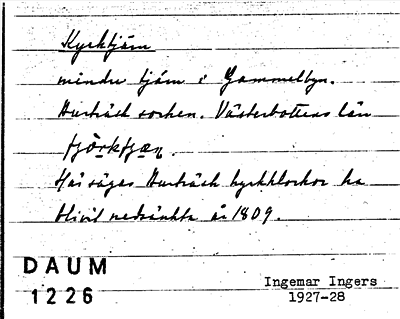 Kyrktjärn
mindre tjärn i Gammelbyn.
Burträsk socken. Västerbottens län
Här säges Burträsk kyrkklockor ha
blivit nedsänkta år 1809.
DAUM
1226
Ingemar Ingers
1927-28